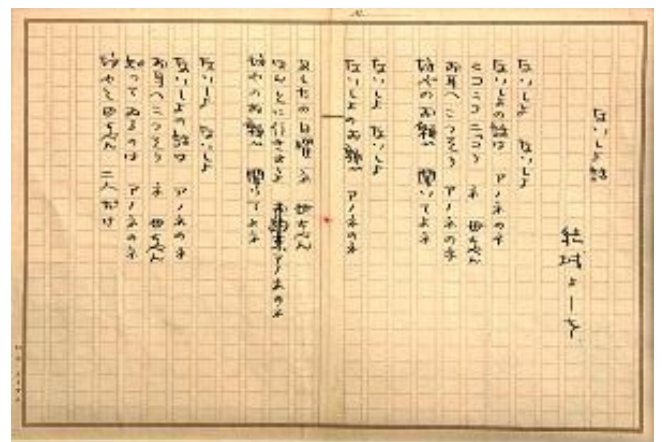 ないしよ話
結城よしを
ないしよ ないしよ
ないしよの話は アノネのネ
ニコニコ ニツコリ ネ 母ちやん
お耳へこつそり アノネのネ
坊やのお願ひ 聞いてよネ
ないしよ ないしよ
ないしよのお願ひ アノネのネ
あしたの日曜 ネ 母ちやん
ほんとに行きませうよ アノネのネ
坊やのお願ひ 聞いてよネ
ないしよ ないしよ
ないしよの話は アノネのネ
お耳へこつそり ネ 母ちやん
知つてゐるのは アノネのネ
坊やと母ちやん 二人だけ